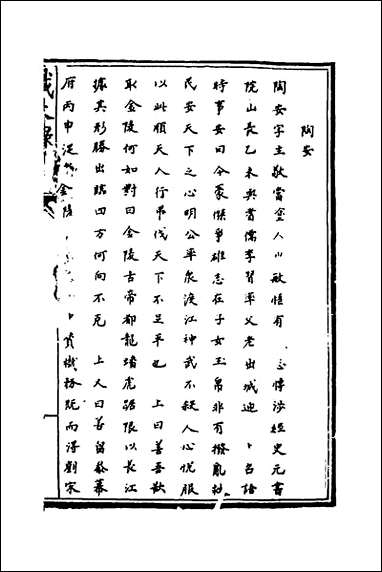 陶安
陶安字主敬當塗人少敏悟有志博涉經史元書
院山長乙未與耆儒李習率父老出城迎上召語
時事安曰今豪傑爭雄志在子女玉帛非有撥亂救
民安天下之心明公率衆渡江神武不殺人心悅服
以此順天人行弔伐天下不足平也 上曰善吾欲
取金陵何如對曰金陵古帝都龍蟠虎踞限以長江
據其形勝出臨四方何向不克 上大曰善留參幕
府丙申從 金陵 賛機務既而得劉宋